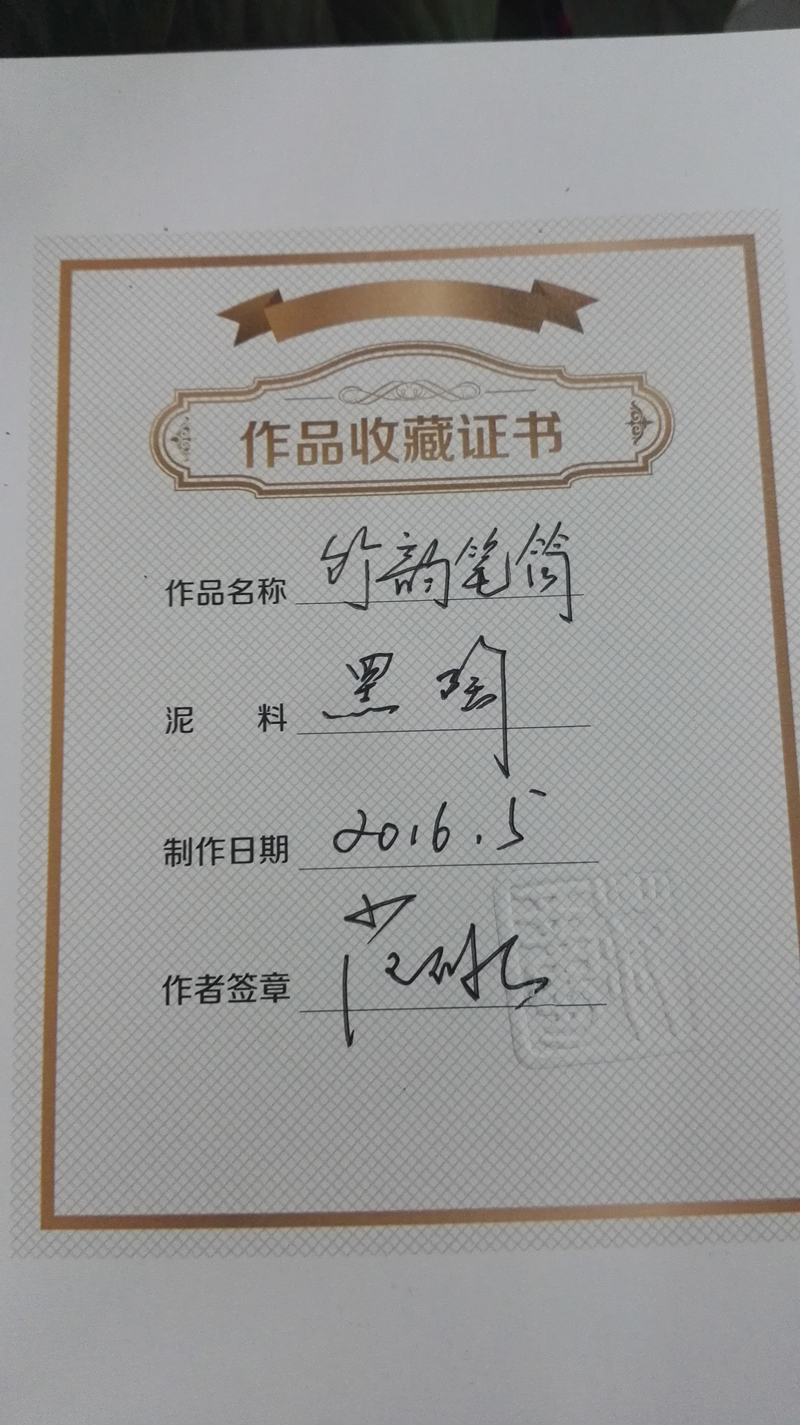 作品收藏证书
作品名称 竹韵笔筒
泥 料 黑陶
制作日期 2016.5
作者签章 范